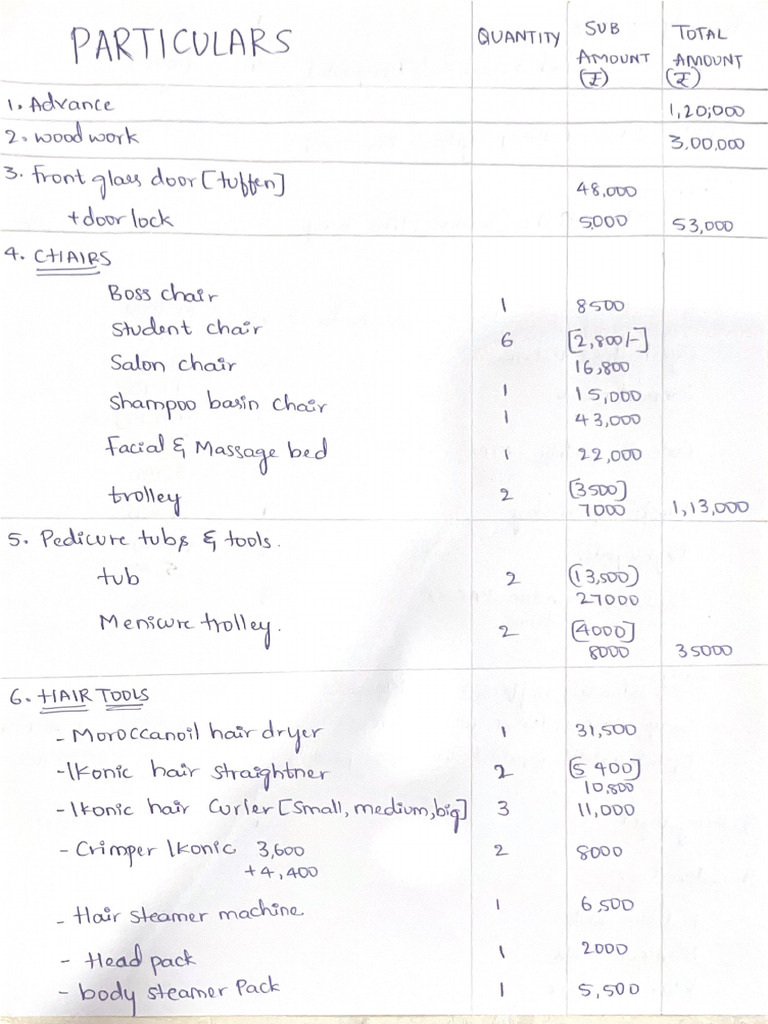 PARTICULARS QUANTITY SUB AMOUNT (₹) TOTAL AMOUNT (₹)
1. Advance 1,20,000
2. wood work 3,00,000
3. Front glass door [tuffen] 48,000
+ door lock 5000 53,000
4. CHAIRS
Boss chair 1 8500
Student chair 6 [2,800/-]
Salon chair 16,800
1 15,000
Shampoo basin chair 1 43,000
Facial & Massage bed 1 22,000
trolley 2 [3500]
7000 1,13,000
5. Pedicure tubs & tools.
tub 2 (13,500)
27000
Menicure trolley. 2 [4000]
8000 35000
6. HAIR TOOLS
- Moroccanoil hair dryer 1 31,500
- Ikonic hair straightner 2 [5400]
10,800
- Ikonic hair Curler [Small, medium, big] 3 11,000
- Crimper Ikonic 3,600 2 8000
+4,400
- Hair steamer machine 1 6,500
- Head pack 1 2000
- body steamer Pack 1 5,500